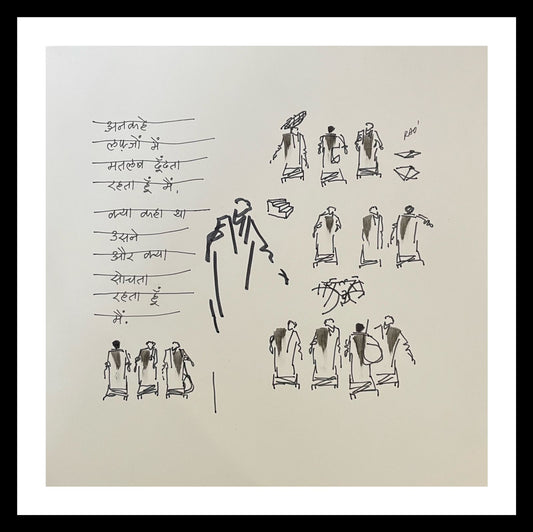 अनकहे
लफ़्ज़ों में
मतलब ढूँढता
रहता हूँ मैं.
क्या कहा था
उसने
और क्या
सोचता
रहता हूँ
मैं.
RAO